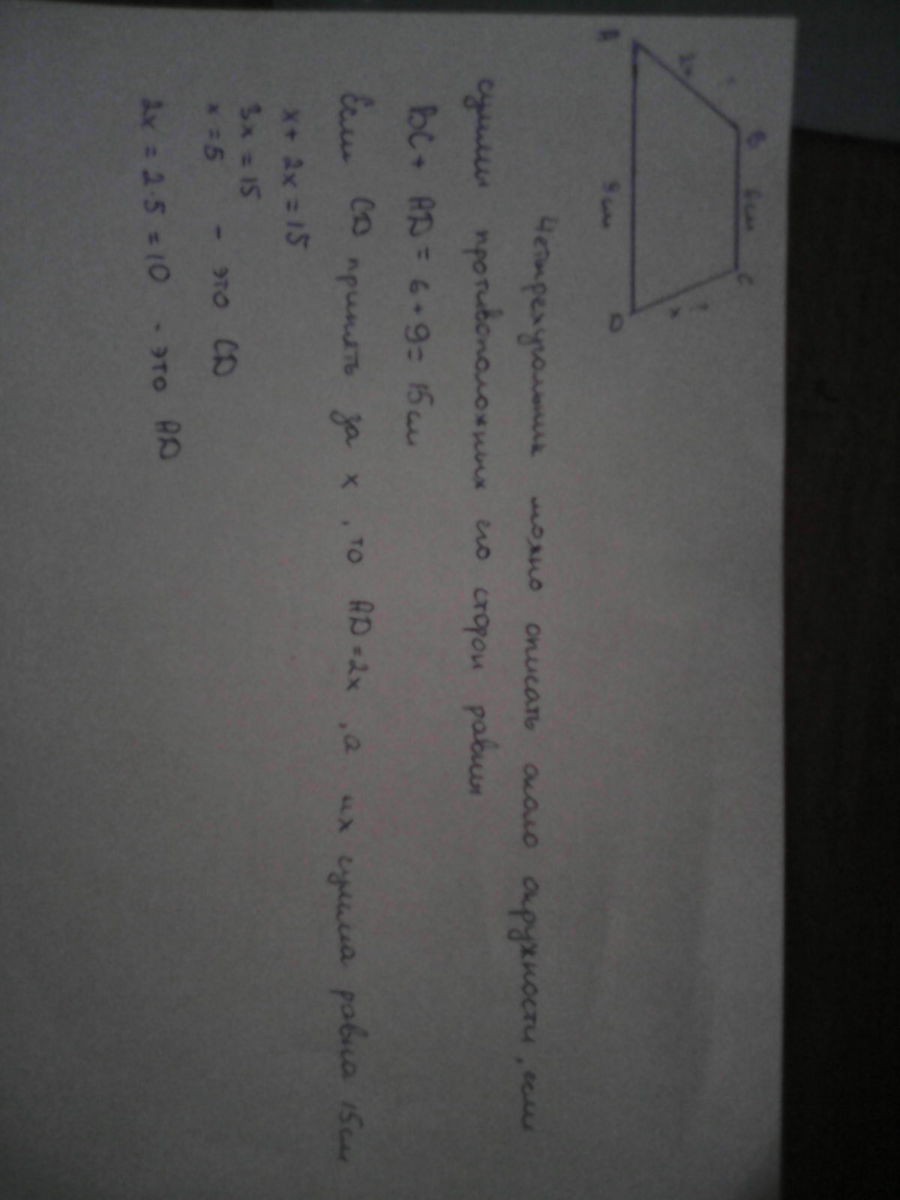 B 6см C
? ?
2x x
A 9см D
Четырехугольник можно описать около окружности, если
суммы противоположных его сторон равны
BC + AD = 6 + 9 = 15 см
Если CD принять за x, то AD = 2x, а их сумма равна 15 см
x + 2x = 15
3x = 15
x = 5 - это CD
2x = 2·5 = 10 - это AD